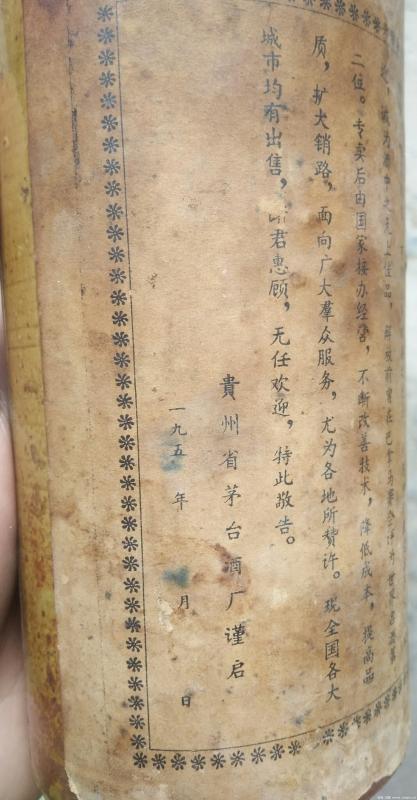 诚为酒中之无上佳品，解放前曾在巴拿马赛会评为世界名酒第
二位。专卖后由国家接办经营，不断改善技术，降低成本，提高品
质，扩大销路，面向广大群众服务，尤为各地所赞许。现全国各大
城市均有出售，君惠顾，无任欢迎，特此敬告。
貴州省茅台酒厂谨启
一九五 年 月 日